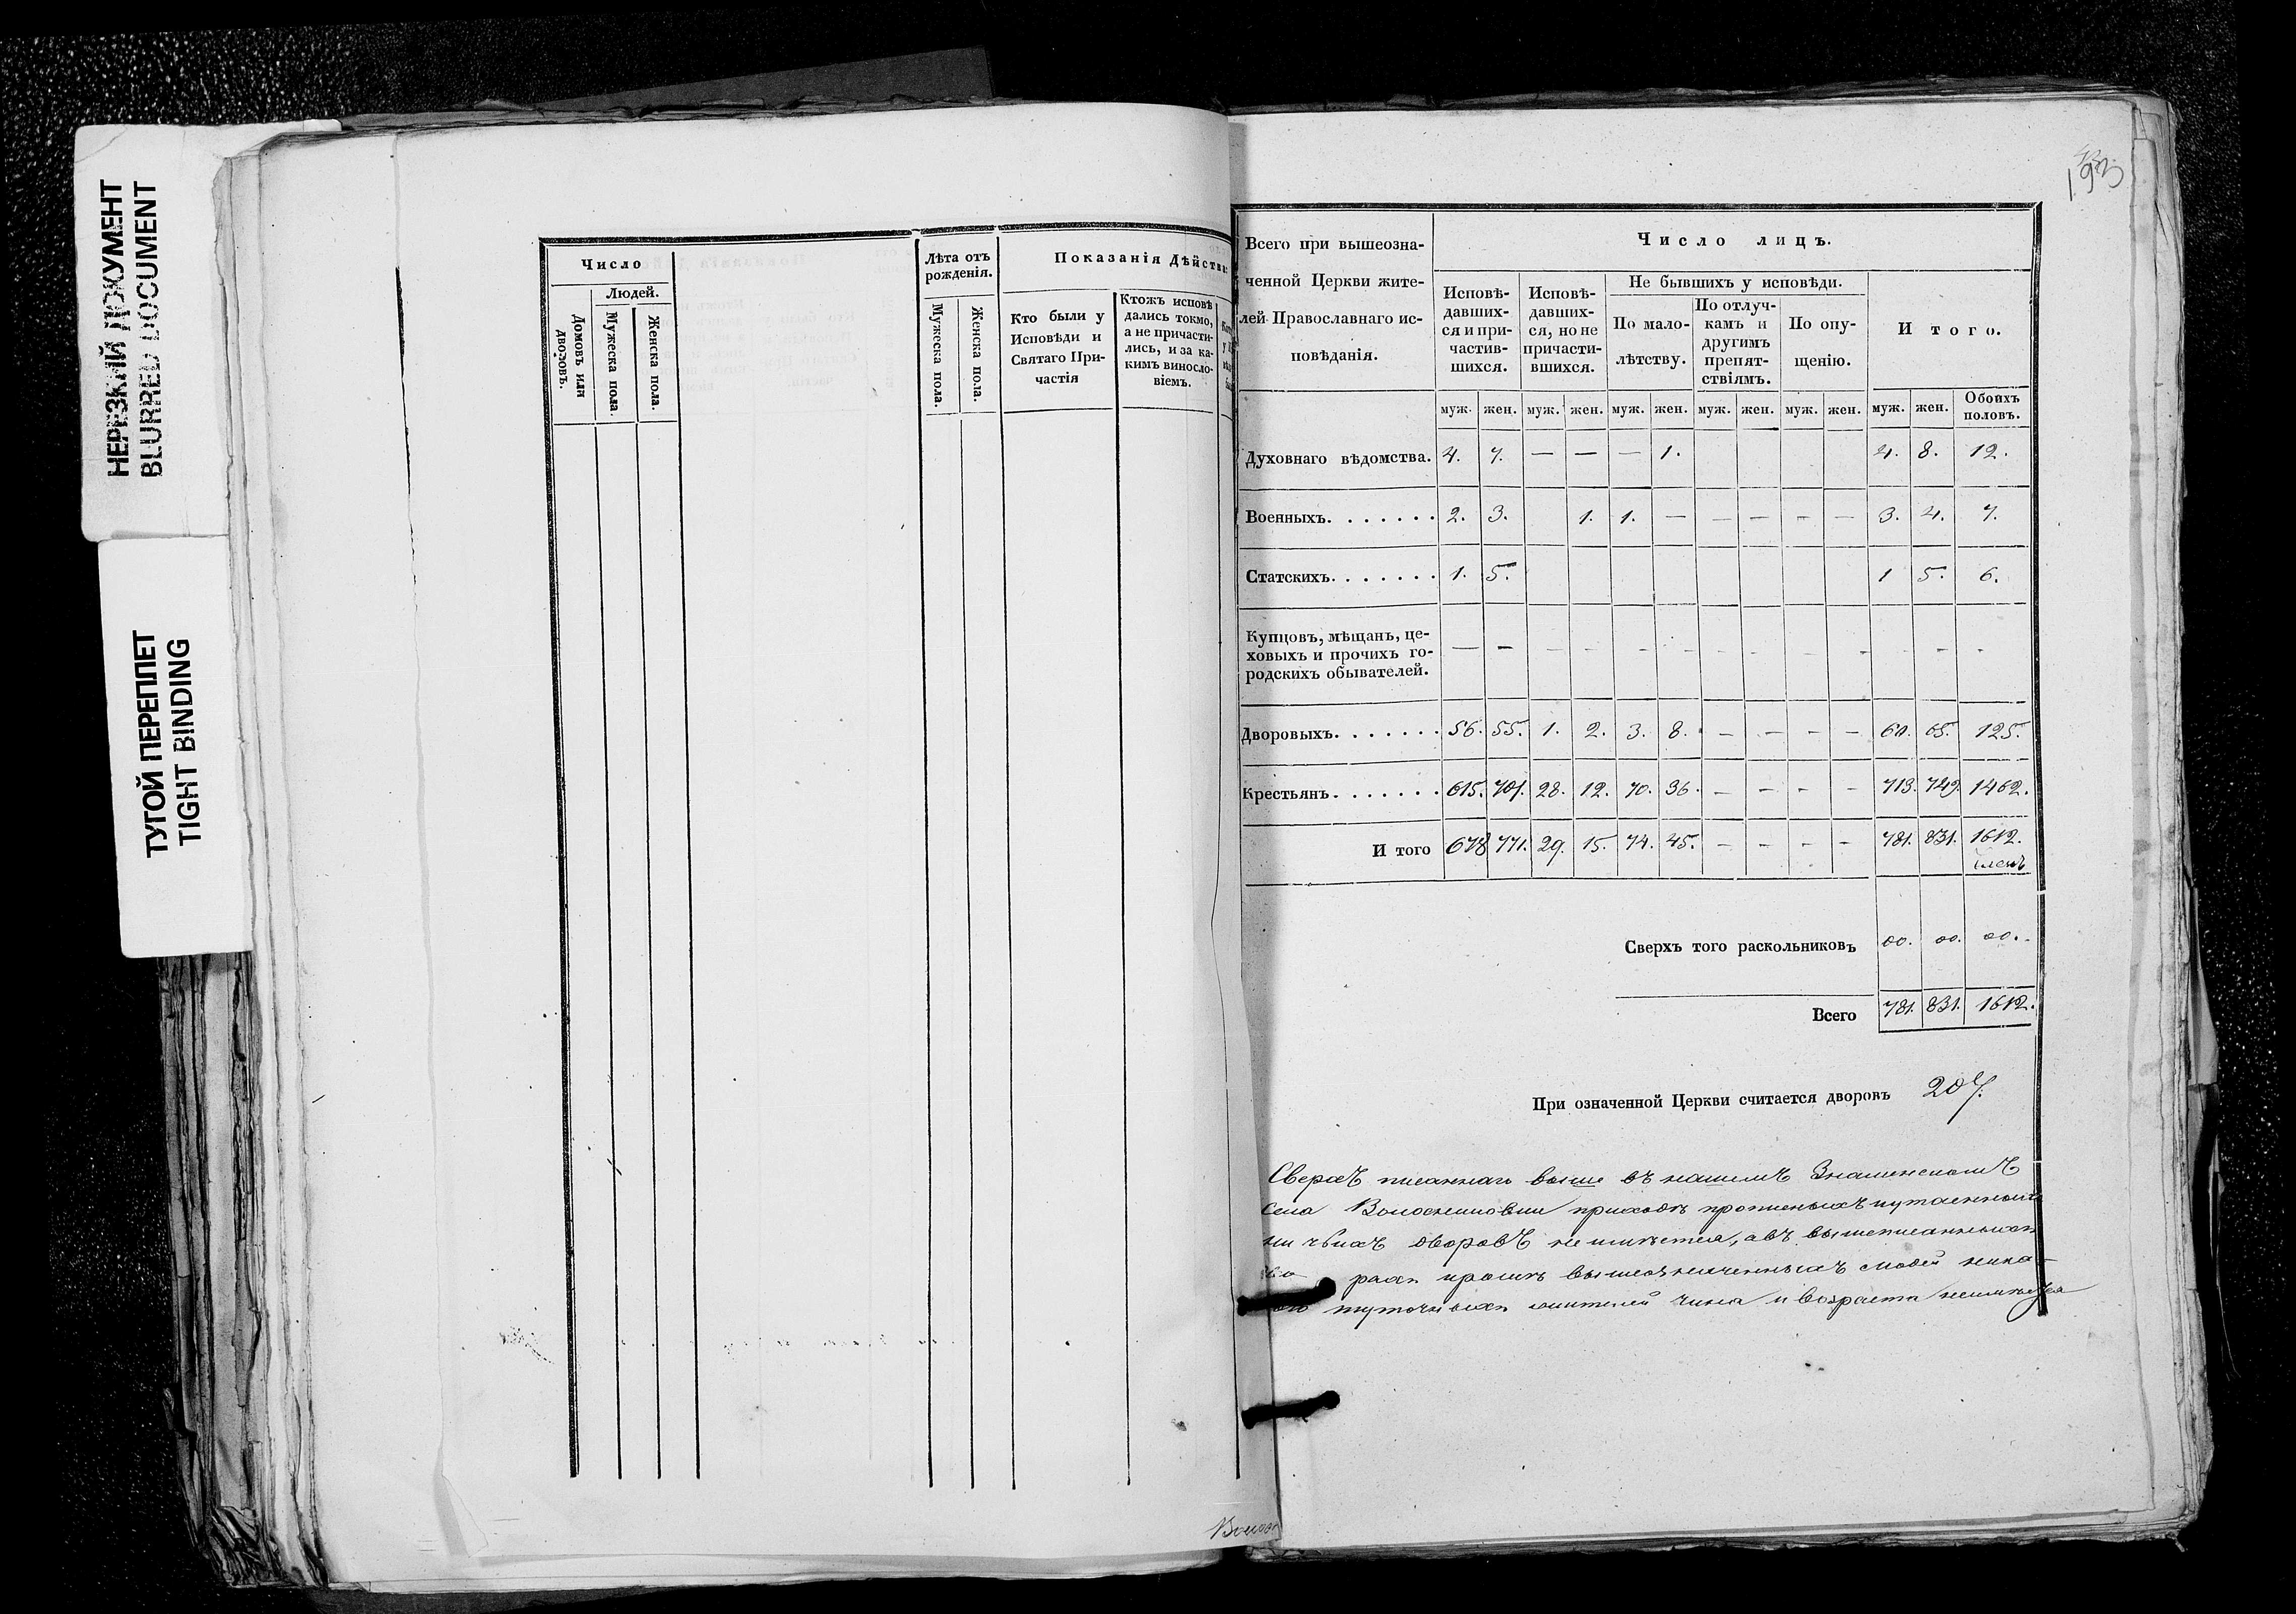 НЕРЕЗКИЙ ДОКУМЕНТ
BLURRED DOCUMENT
ТУГОЙ ПЕРЕПЛЕТ
TIGHT BINDING
Число
Людей.
Домовъ или дворовъ.
Мужеска пола
Женска пола.
Лѣта отъ рожденія.
Мужеска пола.
Женска пола.
Показанія Дѣйства
Кто были у
Исповѣди и
Святаго При-
частія
Ктожъ исповѣ
дались токмо,
а не причасти-
лись, и за ка-
кимъ виносло-
віемъ.
193
Всего при вышеозна-
ченной Церкви жите-
лей Православнаго ис-
повѣданія.
Число лицъ.
Исповѣ-
давших-
ся и при-
частив-
шихся.
Исповѣ-
давших-
ся, но не
причасти-
вшихся.
Не бывшихъ у исповѣди.
По мало-
лѣтству.
По отлуч-
камъ и
другимъ
препят-
ствіямъ.
По опу-
щенію.
И того.
муж. жен. муж. жен. муж. жен. муж. жен. муж. жен. муж. жен. Обоихъ половъ.
Духовнаго вѣдомства. 4. 7. — — — 1. 4. 8. 12.
Военныхъ. . . . . . . 2. 3. 1. 1. — — — — — 3. 4. 7.
Статскихъ. . . . . . . 1. 5. 1 5. 6.
Купцовъ, мѣщанъ, це-
ховыхъ и прочихъ го-
родскихъ обывателей.
— — — — — — — — — — — — —
Дворовыхъ. . . . . . . 56. 55. 1. 2. 3. 8. — — — — 60. 65. 125.
Крестьянъ. . . . . . . 615. 701. 28. 12. 70. 36. — — — — 713. 749. 1462.
И того 678 771. 29. 15. 74. 45. — — — — 781. 831. 1612.
Сверхъ того раскольниковъ 00. 00. 00.
Всего 781. 831. 1612.
При означенной Церкви считается дворовъ 207.
Сверхъ писаннаго выше въ нашемъ Знаменскомъ
села приходѣ
ни чьихъ дворовъ не имѣется, а въ вышеписанныхъ
вышеозначенныхъ людей ника-
чина и возраста неимѣется